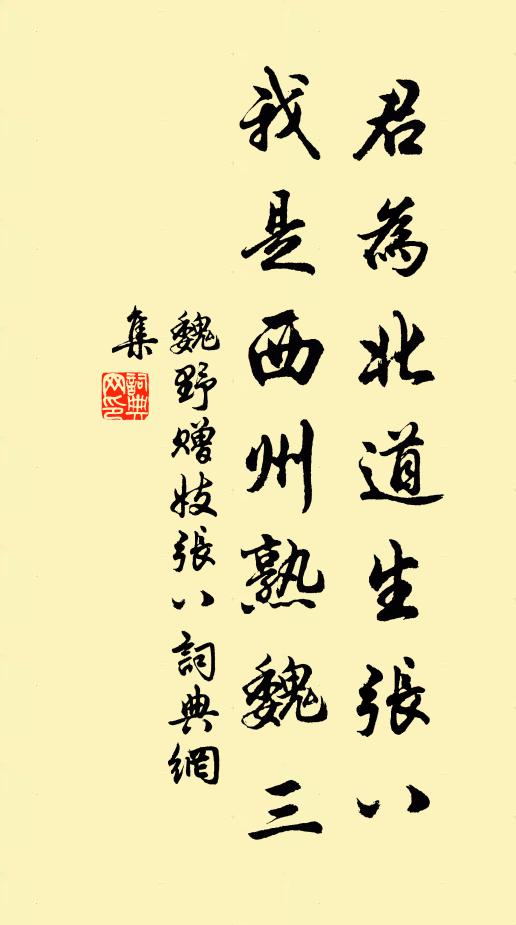 君為北道生張八
我是西州熟魏三
魏野贈妓張八詞典網
集
詞典
网印